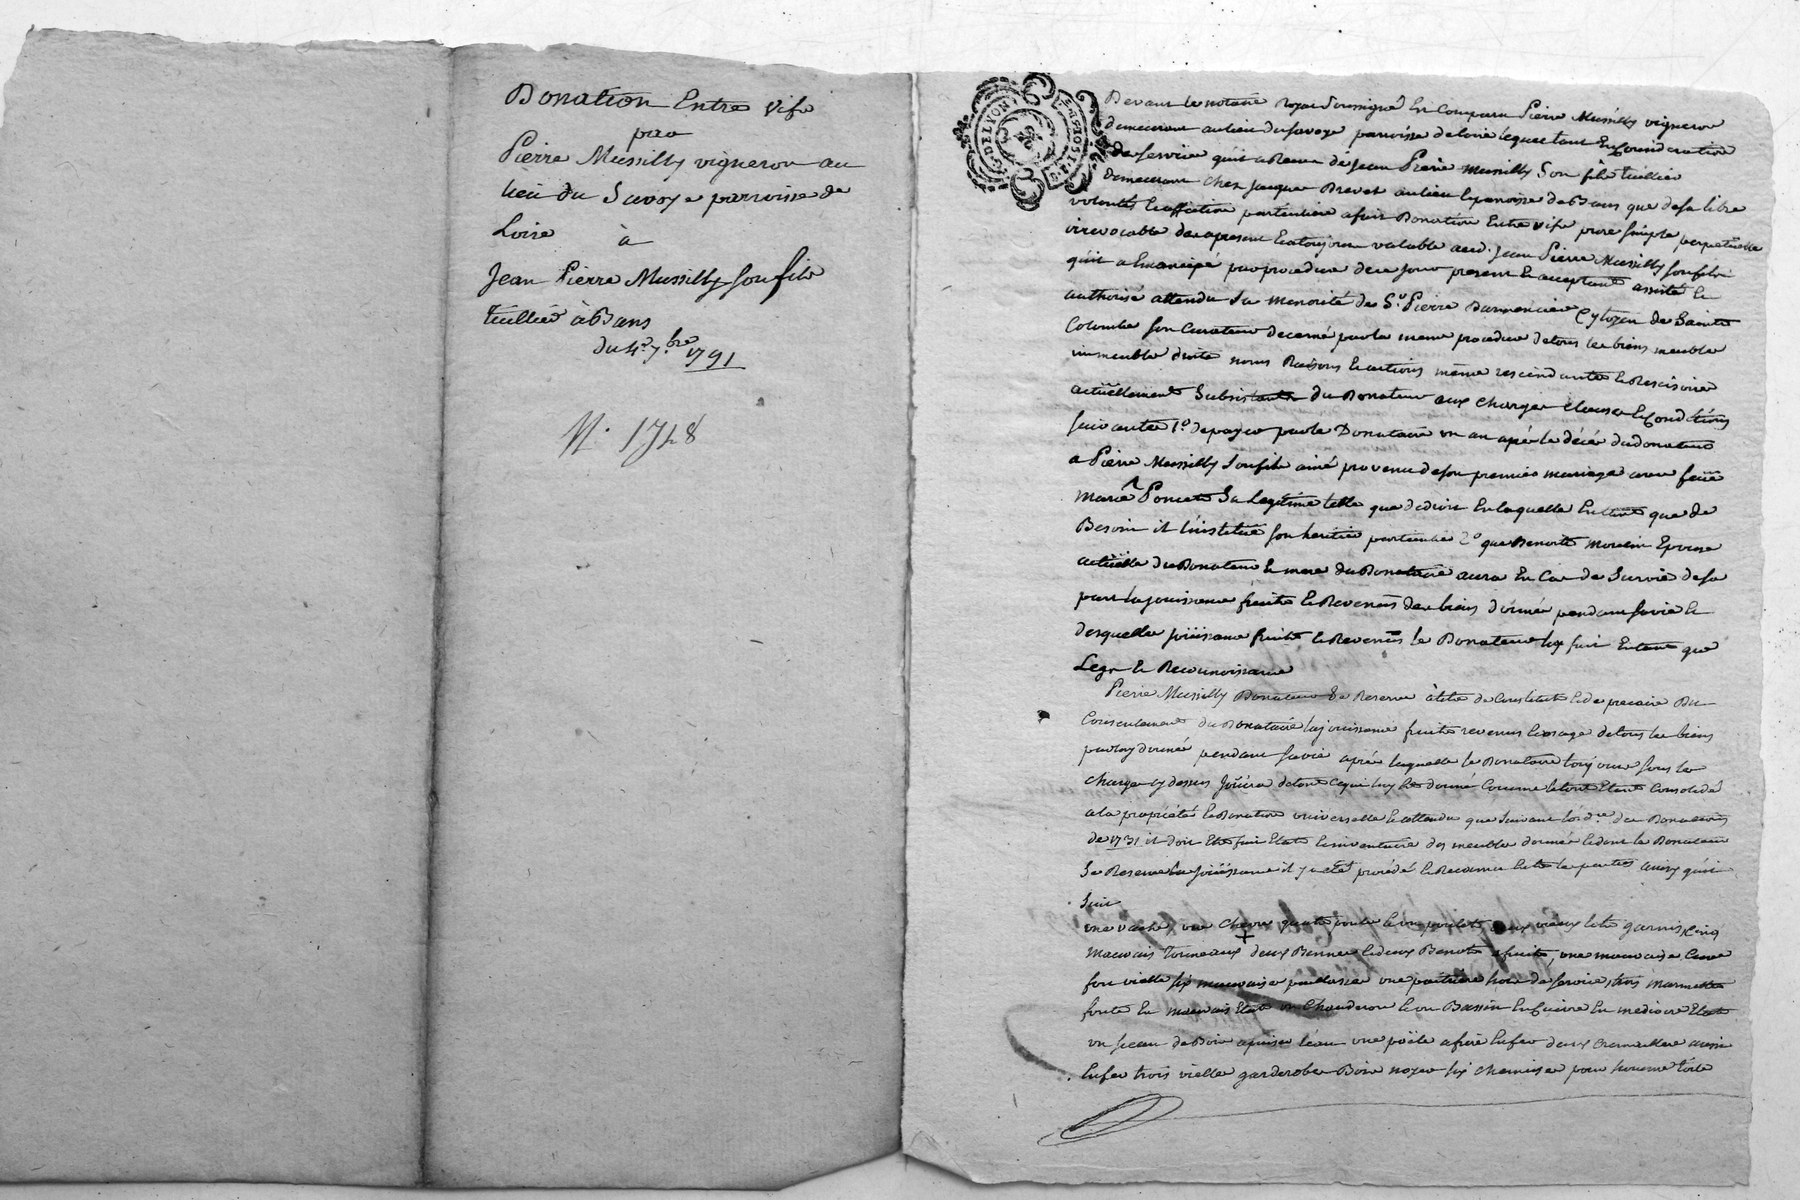 Donation Entre vifs
par
Pierre Mussilly vigneron au
lieu du Savoye parroisse de
Loire à
Jean Pierre Mussilly son fils
tuillier à Bans
du 4e 7.bre 1791
N. 1748
G. DE LYON
Devant le notaire royal soussigné En Comparu Pierre Mussilly vigneron
demeurant au lieu du savoye parroisse de loire lequel tant En Consideration
des services qu'il a Reçu de Jean Pierre Mussilly Son fils tuillier
demeurant chez Jacques Brevet au lieu Et paroisse de Bans que de sa libre
volonté Et affection particuliere a fait Donation Entre vifs pure simple perpetuelle
irrevocable des apresent Et atoujours valable aud. Jean Pierre Mussilly son fils
qu'il a Emancipé par procedure de ce jour present Et acceptant assisté Et
authorisé attendu sa minorité de Sr. Pierre Darmencier Cytoyen de Sainte
Colombe son Curateur decerné par la meme procedure de tous les biens meubles
immeubles droits noms Raisons Et actions même rescindants Et Rescisoires
actuellement Subsistants du Donateur aux charges clauses Et Conditions
suivantes 1.o de payer par le Donataire un an après le décès du donateur
a Pierre Mussilly son fils ainé provenu de son premier mariage avec feüe
Marie Poncet Sa Legitime telle que de droit En laquelle En tant que de
Besoin il l'institue son heritier particulier 2.o que Benoite Morin Epouse
actuelle du Donateur Et mere du Donataire aura En Cas de Survie de sa
part la jouissance fruits Et Revenus des biens donnés pendant sa vie Et
desquelles joüissance fruits Et Revenus le Donateur luy fait En tant que
Legs Et Reconnoissance
Pierre Mussilly Donateur Se Reserve à titre de Constitut Et de precaire Du
Consentement du Donataire la jouissance fruits revenus Et usage de tous les biens
par luy donnés pendant sa vie après laquelle le Donataire toujours sous les
charges cy dessus joüira de tout ce qui luy Est donné Comme le tout Etant Consolidé
a la propriété Et Donation universelle Et attendu que suivant l'ord.ce des Donations
de 1731 il doit Etre fait Etat Et inventaire des meubles donnés Et dont le Donateur
Se Reserve La joüissance il y a Eté procédé Et Reconnu Entre les parties ainsy qu'il
Suit
une vache, une chevre quatre poules Et un poulet deux vieux lits garnis, Cinq
mauvais Tonneaux deux Bennes Et deux Benots a fruits, une mauvaise Cuve
fort vielle six mauvaises paillasses une paitriere hors de service, trois marmittes
fonte En mauvais Etat un Chauderon Et un Bassin En Cuivre En mediocre Etat
un seau de Bois a puiser l'eau une poële a frire En fer deux Cremaillere aussi
En fer trois vielles garderobes Bois noyer six chemises pour homme toile